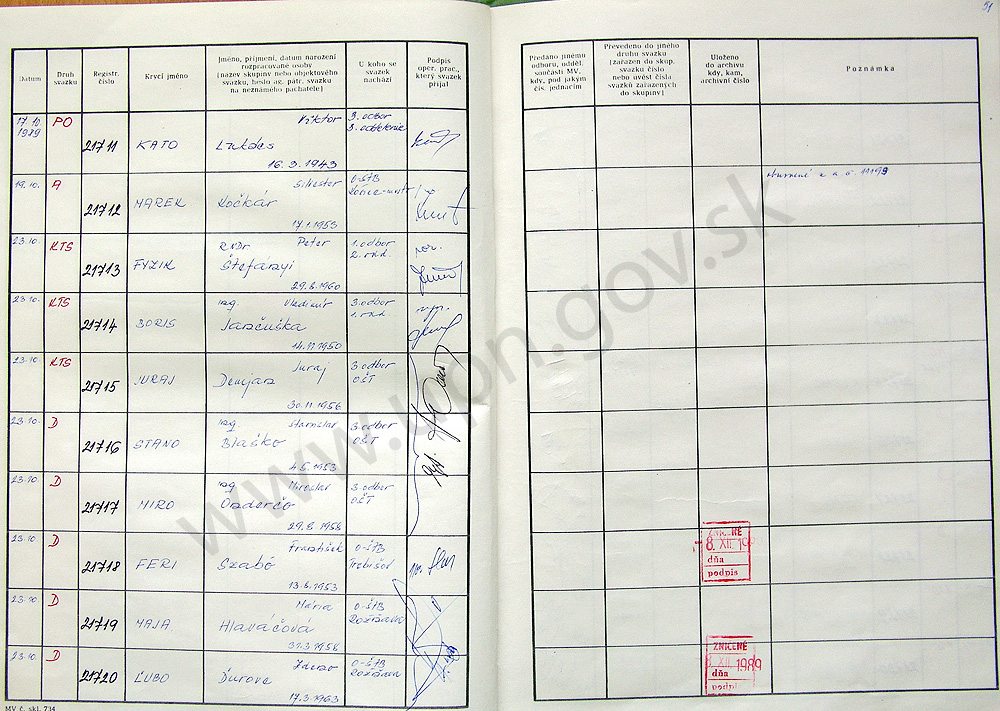 51
Datum
Druh svazku
Registr. číslo
Krycí jméno
Jméno, příjmení, datum narození
rozpracované osoby
(název skupiny nebo objektového
svazku, heslo ag. pátr. svazku
na neznámého pachatele)
U koho se
svazek
nachází
Podpis
oper. prac.,
který svazek
přijal
Předáno jinému
odboru, odděl.
součásti MV,
kdy, pod jakým
čís. jednacím
Převedeno do jiného
druhu svazku
(zařazen do skup.
svazku číslo
nebo uvést čísla
svazků zařazených
do skupiny)
Uloženo
do archivu
kdy, kam,
archivní číslo
Poznámka
17.10. 1989 PO 21711 KATO Lukács Viktor 16.3.1943 3. odbor 3. oddelenie
19.10. A 21712 MAREK Kočkár Silvester 17.1.1953 O-ŠTB
23.10. KTS 21713 FYZIK RNDr Peter 29.8.1960 1. odbor
23.10. KTS 21714 BORIS Ing. Vladimír Jančuška 14.11.1950 3. odbor
23.10. KTS 21715 JURAJ Juraj 30.11.1956 3. odbor OŠT
23.10. D 21716 STANO Ing. Stanislav Blaško 4.5.1953 3. odbor OŠT
23.10. D 21717 MIRO Ing. Miroslav 3. odbor OŠT
23.10. D 21718 FERI František Szabó 13.6.1953 O-ŠTB Trebišov
ZNIČENÉ
8. XII. 198
dňa
podpis
23.10. D 21719 MAJA Mária Hlaváčová O-ŠTB Rožňava
23.10. D 21720 ĽUBO Ďurove 17.3.1963 O-ŠTB Rožňava
ZNIČENÉ
8. XII. 1989
dňa
podpis
MV č. skl. 734
www.upn.gov.sk